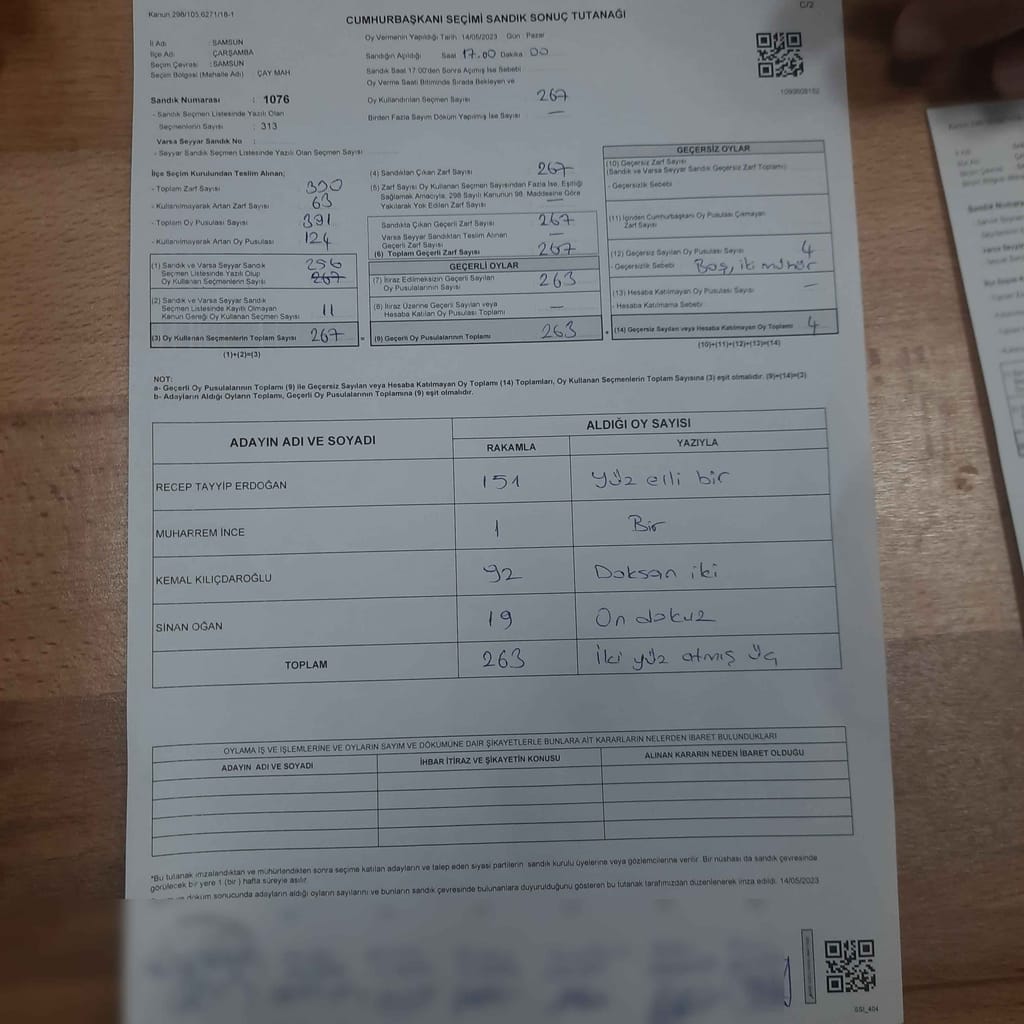 Kanun 298/105,6271/18-1
C/2
CUMHURBAŞKANI SEÇİMİ SANDIK SONUÇ TUTANAĞI
İl Adı : SAMSUN
İlçe Adı : ÇARŞAMBA
Seçim Çevresi : SAMSUN
Seçim Bölgesi (Mahalle Adı) ÇAY MAH
Sandık Numarası : 1076
- Sandık Seçmen Listesinde Yazılı Olan
Seçmenlerin Sayısı : 313
Varsa Seyyar Sandık No :
- Seyyar Sandık Seçmen Listesinde Yazılı Olan Seçmen Sayısı
Oy Vermenin Yapıldığı Tarih: 14/05/2023 Gün : Pazar
Sandığın Açıldığı Saat 17.00 Dakika 00
Sandık Saat 17:00'den Sonra Açılmış İse Sebebi
Oy Verme Saati Bitiminde Sırada Bekleyen ve
Oy Kullandırılan Seçmen Sayısı 267
Birden Fazla Sayım Döküm Yapılmış İse Sayısı —
İlçe Seçim Kurulundan Teslim Alınan;
- Toplam Zarf Sayısı 330
- Kullanılmayarak Artan Zarf Sayısı 63
- Toplam Oy Pusulası Sayısı 391
- Kullanılmayarak Artan Oy Pusulası 124
(1) Sandık ve Varsa Seyyar Sandık 256
Seçmen Listesinde Yazılı Olup 267
Oy Kullanan Seçmenlerin Sayısı
(2) Sandık ve Varsa Seyyar Sandık
Seçmen Listesinde Kayıtlı Olmayan 11
Kanun Gereği Oy Kullanan Seçmen Sayısı
(3) Oy Kullanan Seçmenlerin Toplam Sayısı 267
(1)+(2)=(3)
(4) Sandıktan Çıkan Zarf Sayısı 267
(5) Zarf Sayısı Oy Kullanan Seçmen Sayısından Fazla İse, Eşitliği
Sağlamak Amacıyla, 298 Sayılı Kanunun 98. Maddesine Göre
Yakılarak Yok Edilen Zarf Sayısı —
Sandıkta Çıkan Geçerli Zarf Sayısı 267
Varsa Seyyar Sandıktan Teslim Alınan
Geçerli Zarf Sayısı —
(6) Toplam Geçerli Zarf Sayısı 267
GEÇERLİ OYLAR
(7) İtiraz Edilmeksizin Geçerli Sayılan
Oy Pusulalarının Sayısı 263
(8) İtiraz Üzerine Geçerli Sayılan veya
Hesaba Katılan Oy Pusulası Toplamı —
(9) Geçerli Oy Pusulalarının Toplamı 263
GEÇERSİZ OYLAR
(10) Geçersiz Zarf Sayısı
(Sandık ve Varsa Seyyar Sandık Geçersiz Zarf Toplamı)
- Geçersizlik Sebebi
(11) İçinden Cumhurbaşkanı Oy Pusulası Çıkmayan
Zarf Sayısı
(12) Geçersiz Sayılan Oy Pusulası Sayısı 4
- Geçersizlik Sebebi Boş, iki mühür
(13) Hesaba Katılmayan Oy Pusulası Sayısı —
- Hesaba Katılmama Sebebi
(14) Geçersiz Sayılan veya Hesaba Katılmayan Oy Toplamı 4
(10)+(11)+(12)+(13)=(14)
NOT:
a- Geçerli Oy Pusulalarının Toplamı (9) ile Geçersiz Sayılan veya Hesaba Katılmayan Oy Toplamı (14) Toplamları, Oy Kullanan Seçmenlerin Toplam Sayısına (3) eşit olmalıdır. (9)+(14)=(3)
b- Adayların Aldığı Oyların Toplamı, Geçerli Oy Pusulalarının Toplamına (9) eşit olmalıdır.
ADAYIN ADI VE SOYADI
ALDIĞI OY SAYISI
RAKAMLA YAZIYLA
RECEP TAYYİP ERDOĞAN 151 yüz elli bir
MUHARREM İNCE 1 Bir
KEMAL KILIÇDAROĞLU 92 Doksan iki
SİNAN OĞAN 19 On dokuz
TOPLAM 263 İki yüz atmış üç
OYLAMA İŞ VE İŞLEMLERİNE VE OYLARIN SAYIM VE DÖKÜMÜNE DAİR ŞİKAYETLERLE BUNLARA AİT KARARLARIN NELERDEN İBARET BULUNDUKLARI
ADAYIN ADI VE SOYADI İHBAR İTİRAZ VE ŞİKAYETİN KONUSU ALINAN KARARIN NEDEN İBARET OLDUĞU
*Bu tutanak imzalandıktan ve mühürlendikten sonra seçime katılan adayların ve talep eden siyasi partilerin sandık kurulu üyelerine veya gözlemcilerine verilir. Bir nüshası da sandık çevresinde
görülecek bir yere 1 (bir) hafta süreyle asılır.
döküm sonucunda adayların aldığı oyların sayılarını ve bunların sandık çevresinde bulunanlara duyurulduğunu gösteren bu tutanak tarafımızdan düzenlenerek imza edildi. 14/05/2023